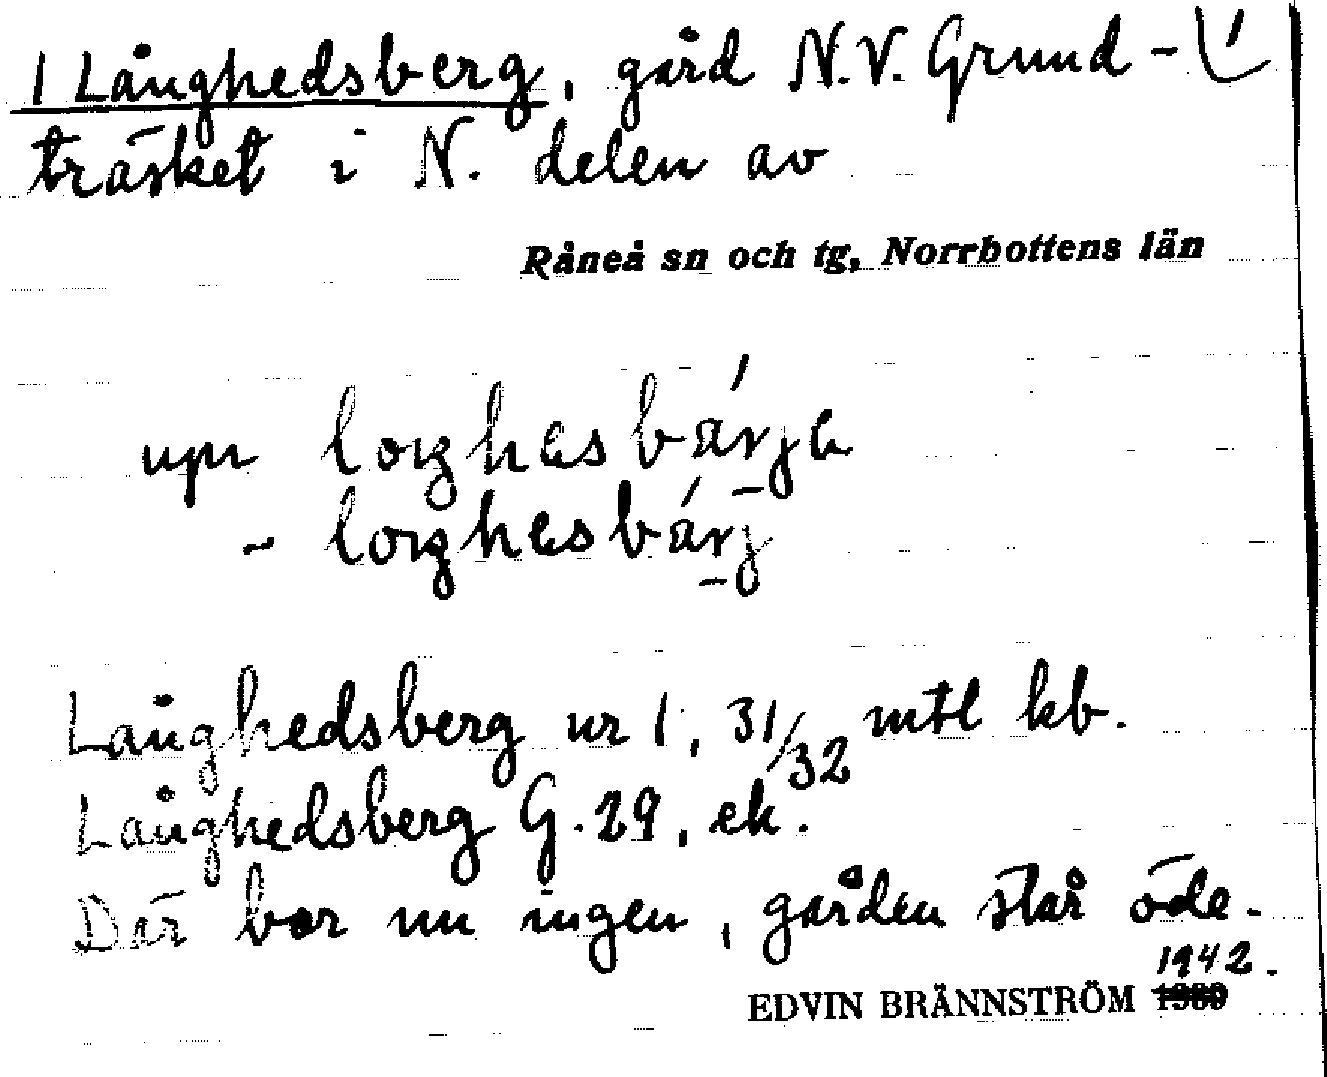 1 Långhedsberg, gård N.V. Grund-
träsket i N. delen av
Råneå sn och tg, Norrbottens län
Långhedsberg nr 1, 31/32 mtl kb.
Långhedsberg G. 29, ek.
Där bor nu ingen, gården står öde.
1942.
EDVIN BRÄNNSTRÖM